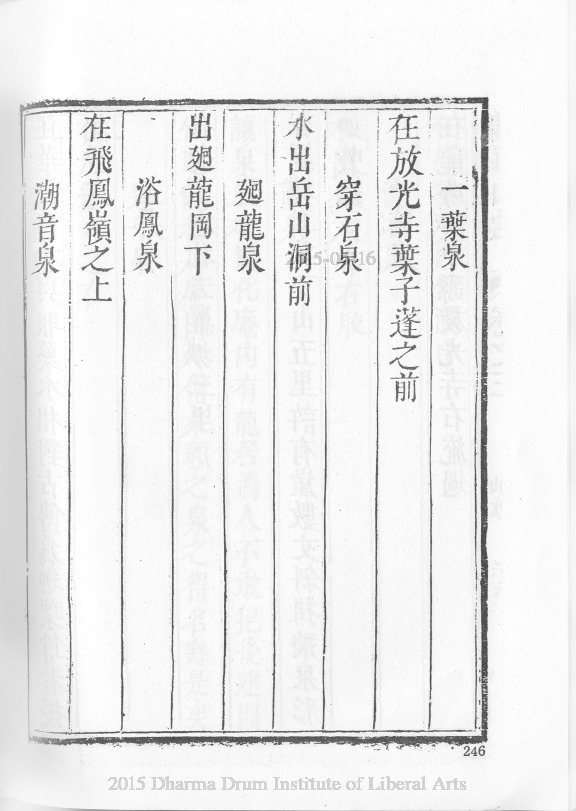 一葉泉
在放光寺葉子蓬之前
穿石泉
水出岳山洞前
廻龍泉
出廻龍岡下
浴鳳泉
在飛鳳嶺之上
潮音泉
246
2015 Dharma Drum Institute of Liberal Arts